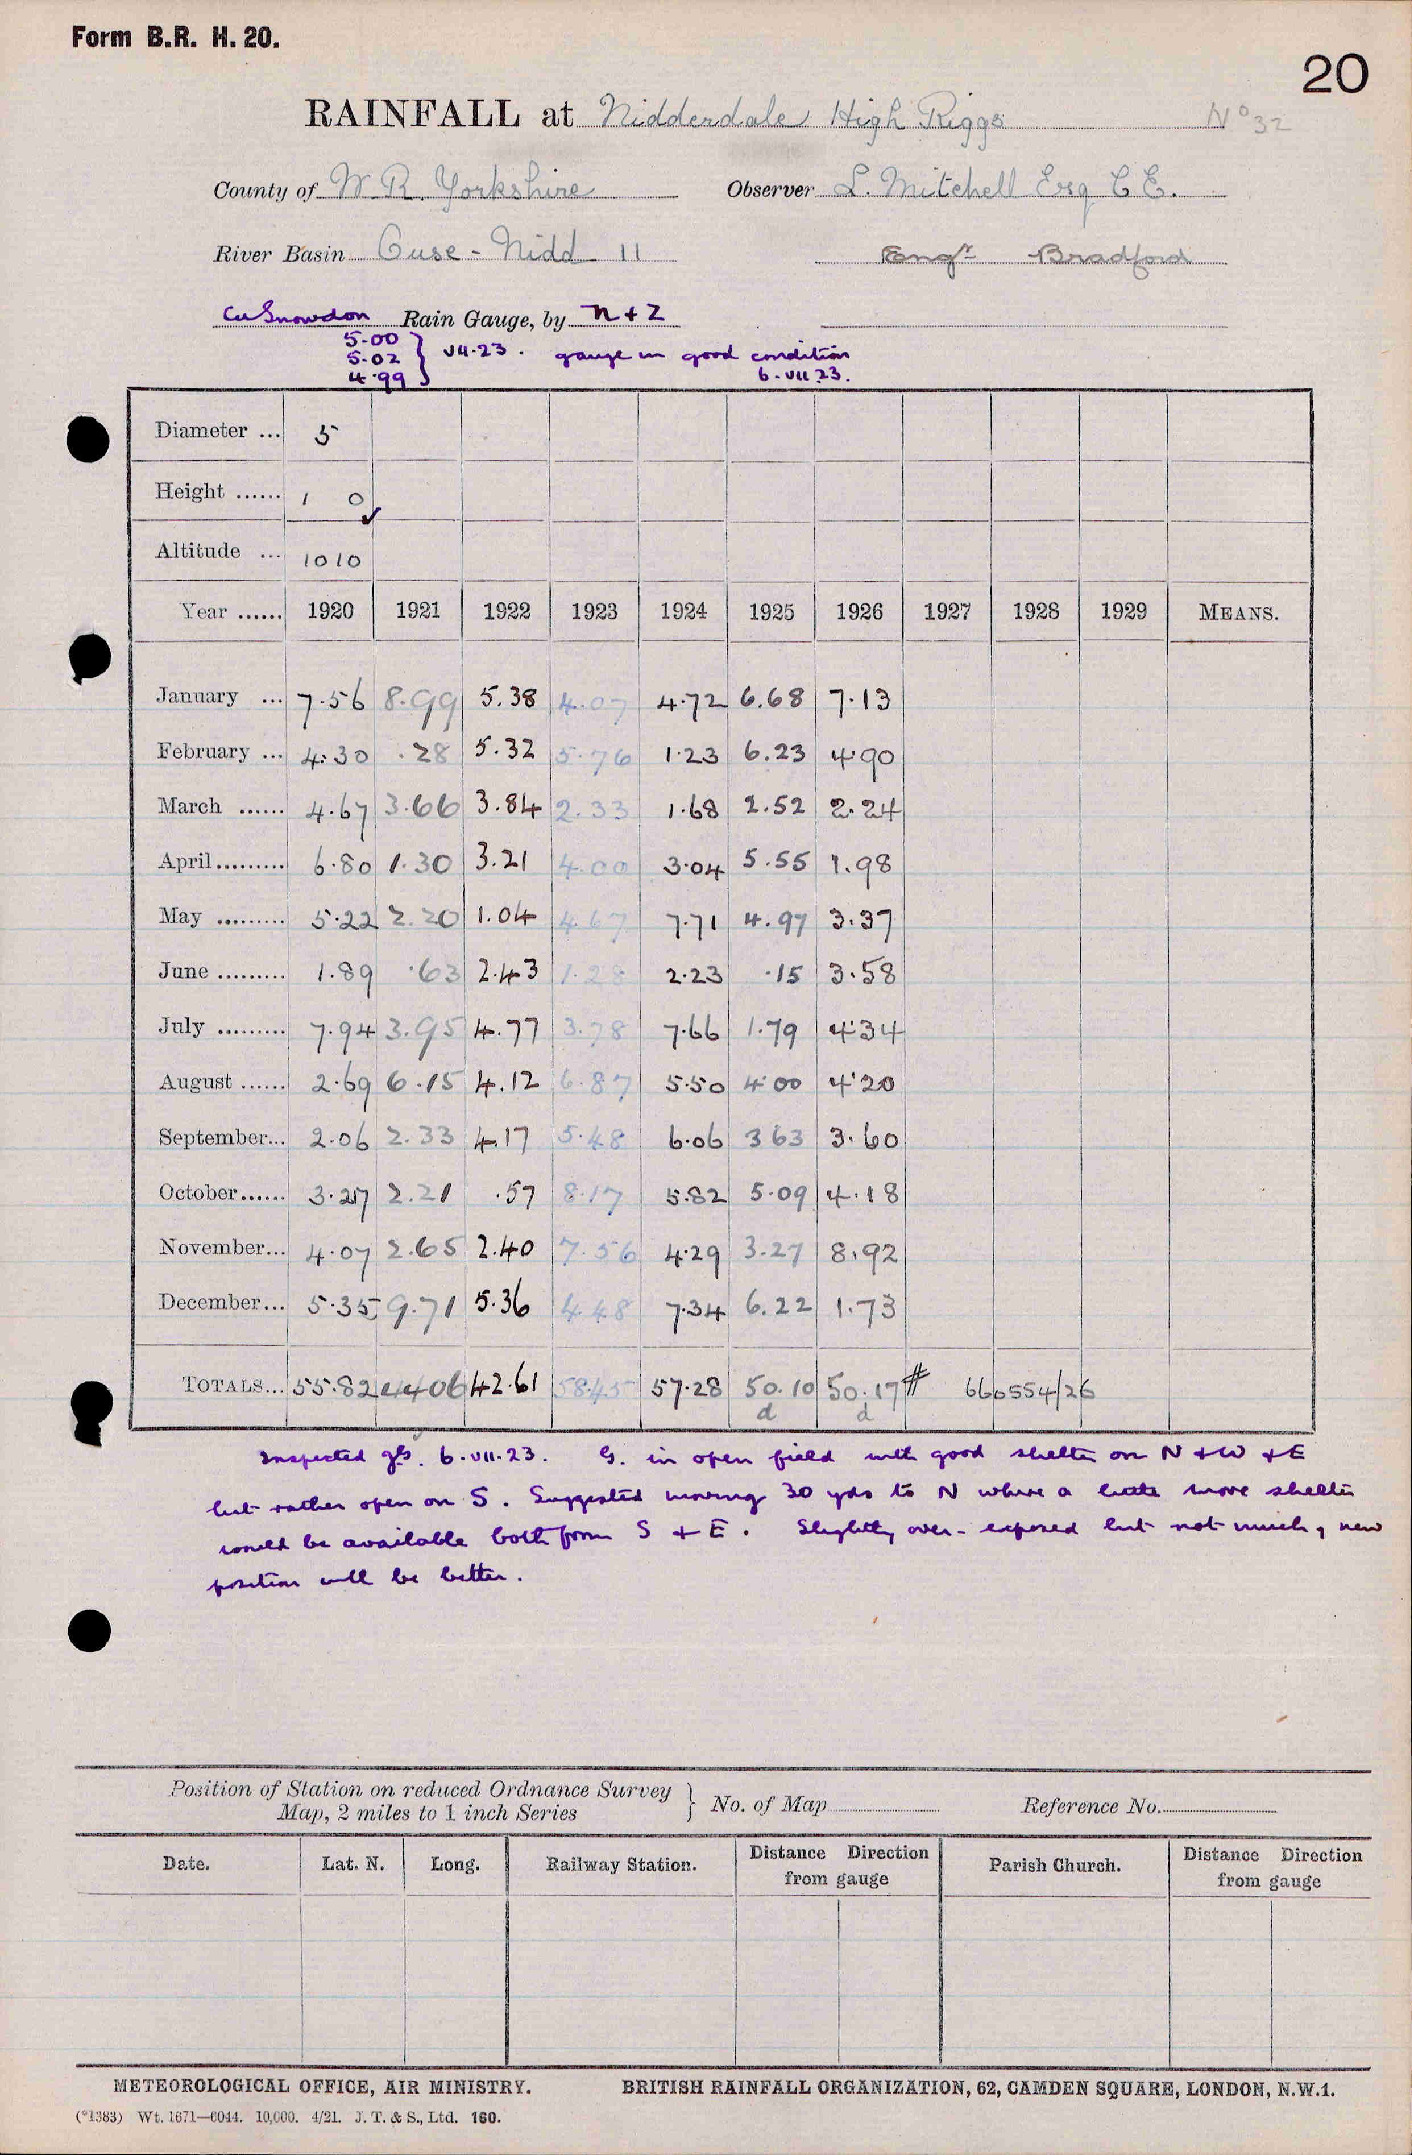 Form B.R. H. 20.
20
RAINFALL at Nidderdale High Riggs No 32
County of W R. Yorkshire Observer L. Mitchell Esq C E.
River Basin Ouse - Nidd 11 Engr Bradford
Cu Snowdon Rain Gauge, by N + Z
5.00
5.02 } VII.23. gauge in good condition
4.99 6.VII.23.
Diameter ... 5
Height ...... 1 0
Altitude ... 1010
Year ...... 1920 1921 1922 1923 1924 1925 1926 1927 1928 1929 MEANS.
January ... 7.56 8.99 5.38 4.07 4.72 6.68 7.13
February ... 4.30 .28 5.32 5.76 1.23 6.23 4.90
March ...... 4.67 3.66 3.84 2.33 1.68 2.52 2.24
April ......... 6.80 1.30 3.21 4.00 3.04 5.55 1.98
May ......... 5.22 2.20 1.04 4.67 7.71 4.97 3.37
June ......... 1.89 .63 2.43 1.28 2.23 .15 3.58
July ......... 7.94 3.95 4.77 3.78 7.66 1.79 4.34
August ...... 2.69 6.15 4.12 6.87 5.50 4.00 4.20
September... 2.06 2.33 4.17 5.48 6.06 3 63 3.60
October...... 3.27 2.21 .57 8.17 5.82 5.09 4.18
November... 4.07 2.65 2.40 7.56 4.29 3.27 8.92
December... 5.35 9.71 5.36 4.48 7.34 6.22 1.73
TOTALS... 55.82 44 06 42.61 58.45 57.28 50.10 50.17 # 660554/26
d d
Inspected 6.VII.23. G. in open field with good shelter on N + W + E
but rather open on S. Suggested moving 30 yds to N where a little more shelter
would be available both from S + E. Slightly over-exposed but not much, new
position will be better.
Position of Station on reduced Ordnance Survey
Map, 2 miles to 1 inch Series } No. of Map Reference No.
Date. Lat. N. Long. Railway Station. Distance Direction from gauge Parish Church. Distance Direction from gauge
METEOROLOGICAL OFFICE, AIR MINISTRY. BRITISH RAINFALL ORGANIZATION, 62, CAMDEN SQUARE, LONDON, N.W.1.
(*1383) Wt. 1671—6044. 10,000. 4/21. J. T. & S., Ltd. 160.